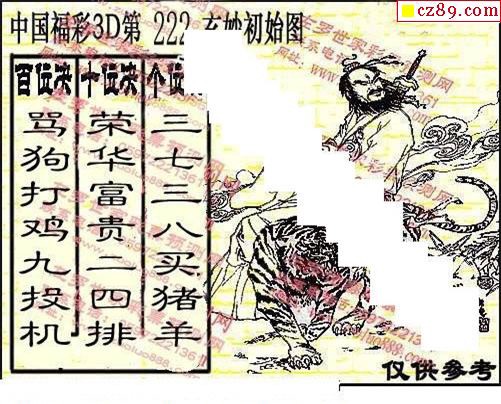 cz89.com
中国福彩3D第 222 玄妙初始图
百位决
骂狗打鸡九投机
十位决
荣华富贵二四排
个位
三七三八买猪羊
仅供参考